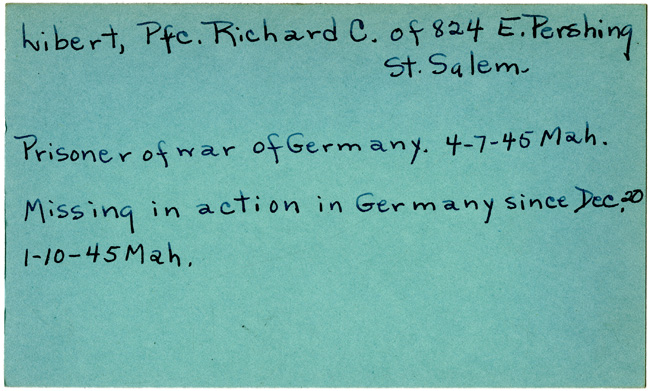 Libert, Pfc. Richard C. of 824 E. Pershing
St. Salem
Prisoner of war of Germany. 4-7-45 Mah.
Missing in action in Germany since Dec. 20
1-10-45 Mah.